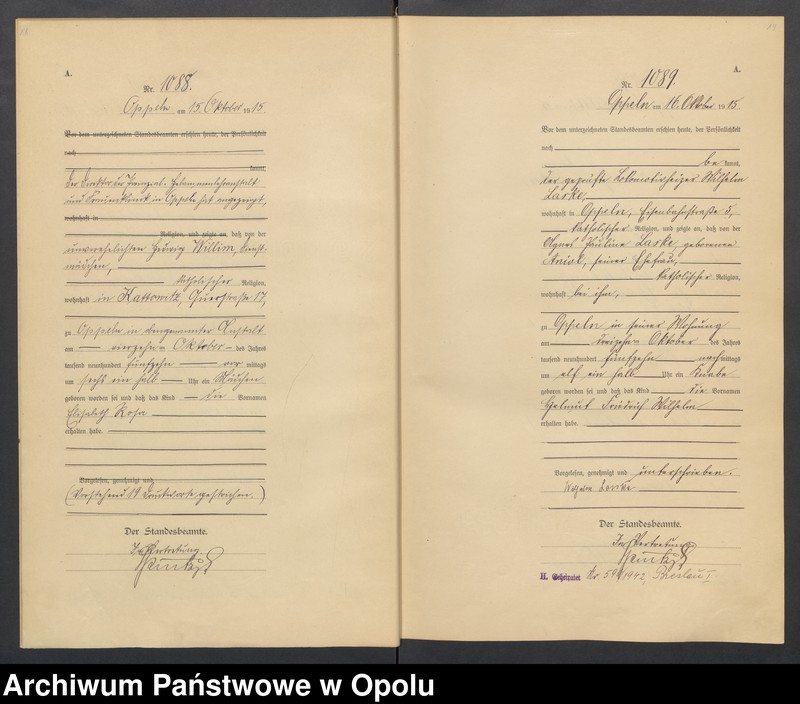 A.
Nr. 1088.
Oppeln am 15. Oktober 1915.
Vor dem unterzeichneten Standesbeamten erschien heute, der Persönlichkeit
nach
kannt,
Der Direktor der Provinzial-Hebammenlehranstalt
und Frauenklinik in Oppeln hat angezeigt,
wohnhaft in
Religion, und zeigte an, daß von der
unverehelichten Hedwig Willim, Dienst-
mädchen,
katholischer Religion,
wohnhaft in Kattowitz, Querstraße 17,
zu Oppeln in vorgenannter Anstalt
am vierzehnten Oktober des Jahres
tausend neunhundert fünfzehn vor mittags
um sechs ein halb Uhr ein Mädchen
geboren worden sei und daß das Kind die Vornamen
Elisabeth Rosa
erhalten habe.
Vorgelesen, genehmigt und
(Vorstehend 19 Druckworte gestrichen.)
Der Standesbeamte.
In Vertretung
A.
Nr. 1089.
Oppeln am 16. Oktober 1915.
Vor dem unterzeichneten Standesbeamten erschien heute, der Persönlichkeit
nach
be kannt,
der geprüfte Lokomotivheizer Wilhelm
Laske,
wohnhaft in Oppeln, Eisenbahnstraße 5,
katholischer Religion, und zeigte an, daß von der
Agnes Paulina Laske geborenen
seiner Ehefrau,
katholischer Religion,
wohnhaft bei ihm,
zu Oppeln in seiner Wohnung
am dreizehn Oktober des Jahres
tausend neunhundert fünfzehn nachmittags
um elf ein halb Uhr ein Knabe
geboren worden sei und daß das Kind die Vornamen
Helmut Friedrich Wilhelm
erhalten habe.
Vorgelesen, genehmigt und unterschrieben.
Wilhelm Laske
Der Standesbeamte.
In Vertretung
H. Geheiratet Nr. 59/1942, Breslau I
Archiwum Państwowe w Opolu